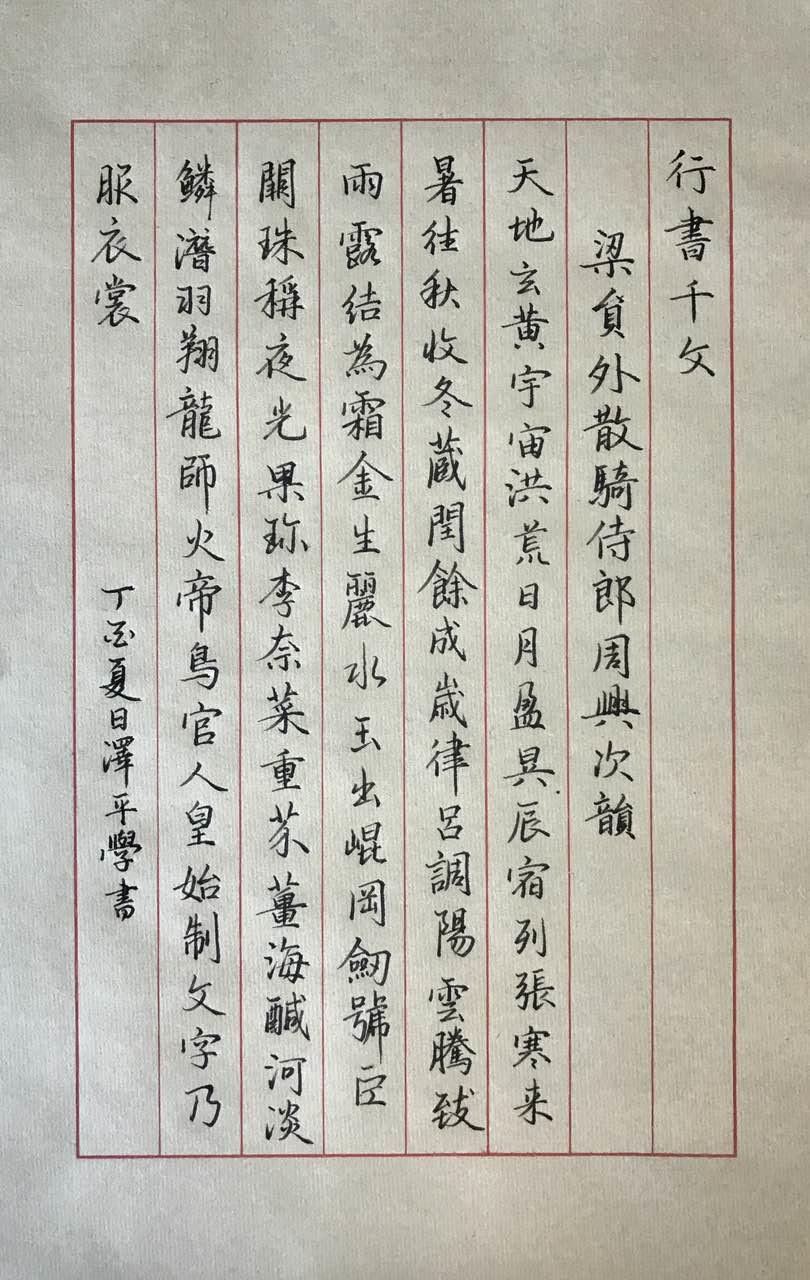 行書千文
梁員外散騎侍郎周興次韻
天地玄黃宇宙洪荒日月盈昃辰宿列張寒来
暑往秋收冬藏閏餘成歲律呂調陽雲騰致
雨露結為霜金生麗水玉出崐岡劒號巨
闕珠稱夜光果珎李柰菜重芥薑海鹹河淡
鱗潛羽翔龍師火帝鳥官人皇始制文字乃
服衣裳
丁酉夏日澤平學書